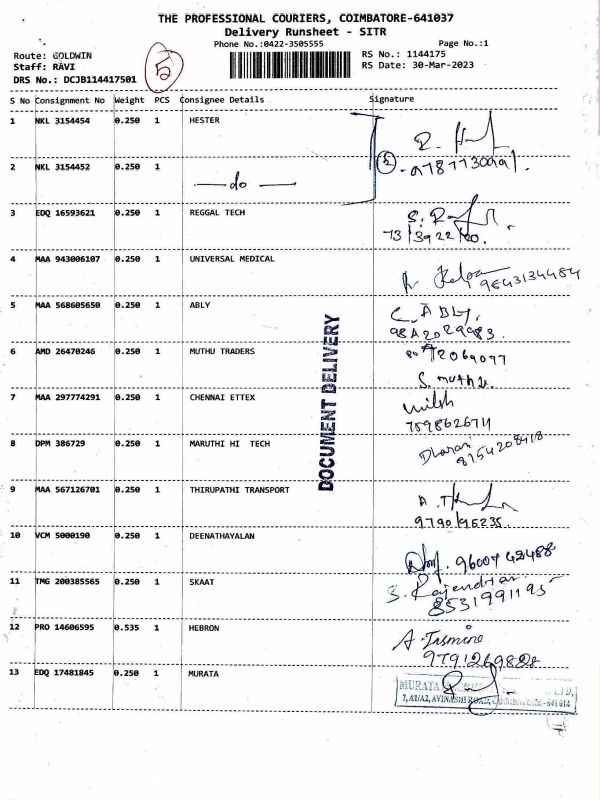 THE PROFESSIONAL COURIERS, COIMBATORE-641037
Delivery Runsheet - SITR
Phone No.:0422-3505555 Page No.:1
Route: GOLDWIN RS No.: 1144175
Staff: RAVI RS Date: 30-Mar-2023
DRS No.: DCJB114417501
5
S No Consignment No Weight PCS Consignee Details Signature
1 NKL 3154454 0.250 1 HESTER
2 NKL 3154452 0.250 1 do
3 EDQ 16593621 0.250 1 REGGAL TECH
73/3922/00.
4 MAA 943006107 0.250 1 UNIVERSAL MEDICAL
9543134484
5 MAA 568605650 0.250 1 ABLY
C. ABLY.
6 AMD 26470246 0.250 1 MUTHU TRADERS
7 MAA 297774291 0.250 1 CHENNAI ETTEX
7598626711
8 DPM 386729 0.250 1 MARUTHI HI TECH
Dharani
8154208418
9 MAA 567126701 0.250 1 THIRUPATHI TRANSPORT
9790196235.
10 VCM 5000190 0.250 1 DEENATHAYALAN
9600742488
11 TMG 200385565 0.250 1 SKAAT
S. Rajendran
8531991195
12 PRO 14606595 0.535 1 HEBRON
A. Jasmine
9791269828
13 EDQ 17481845 0.250 1 MURATA
MURATA
7, A1/A2, AVINASHI ROAD, - 641 014
DOCUMENT DELIVERY